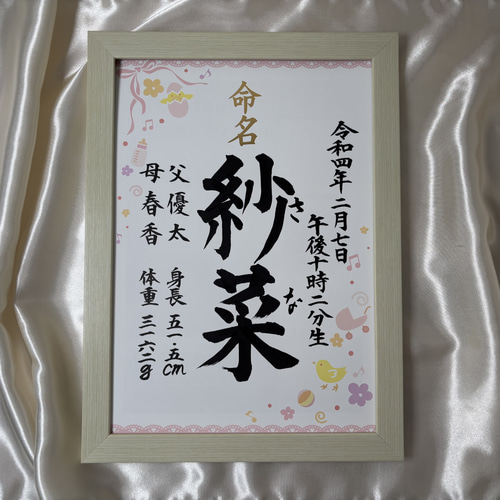 命名
令和四年 二月七日
午後十時二分生
紗菜
さな
父 優太
母 春香
身長 五一.五cm
体重 三一六二g